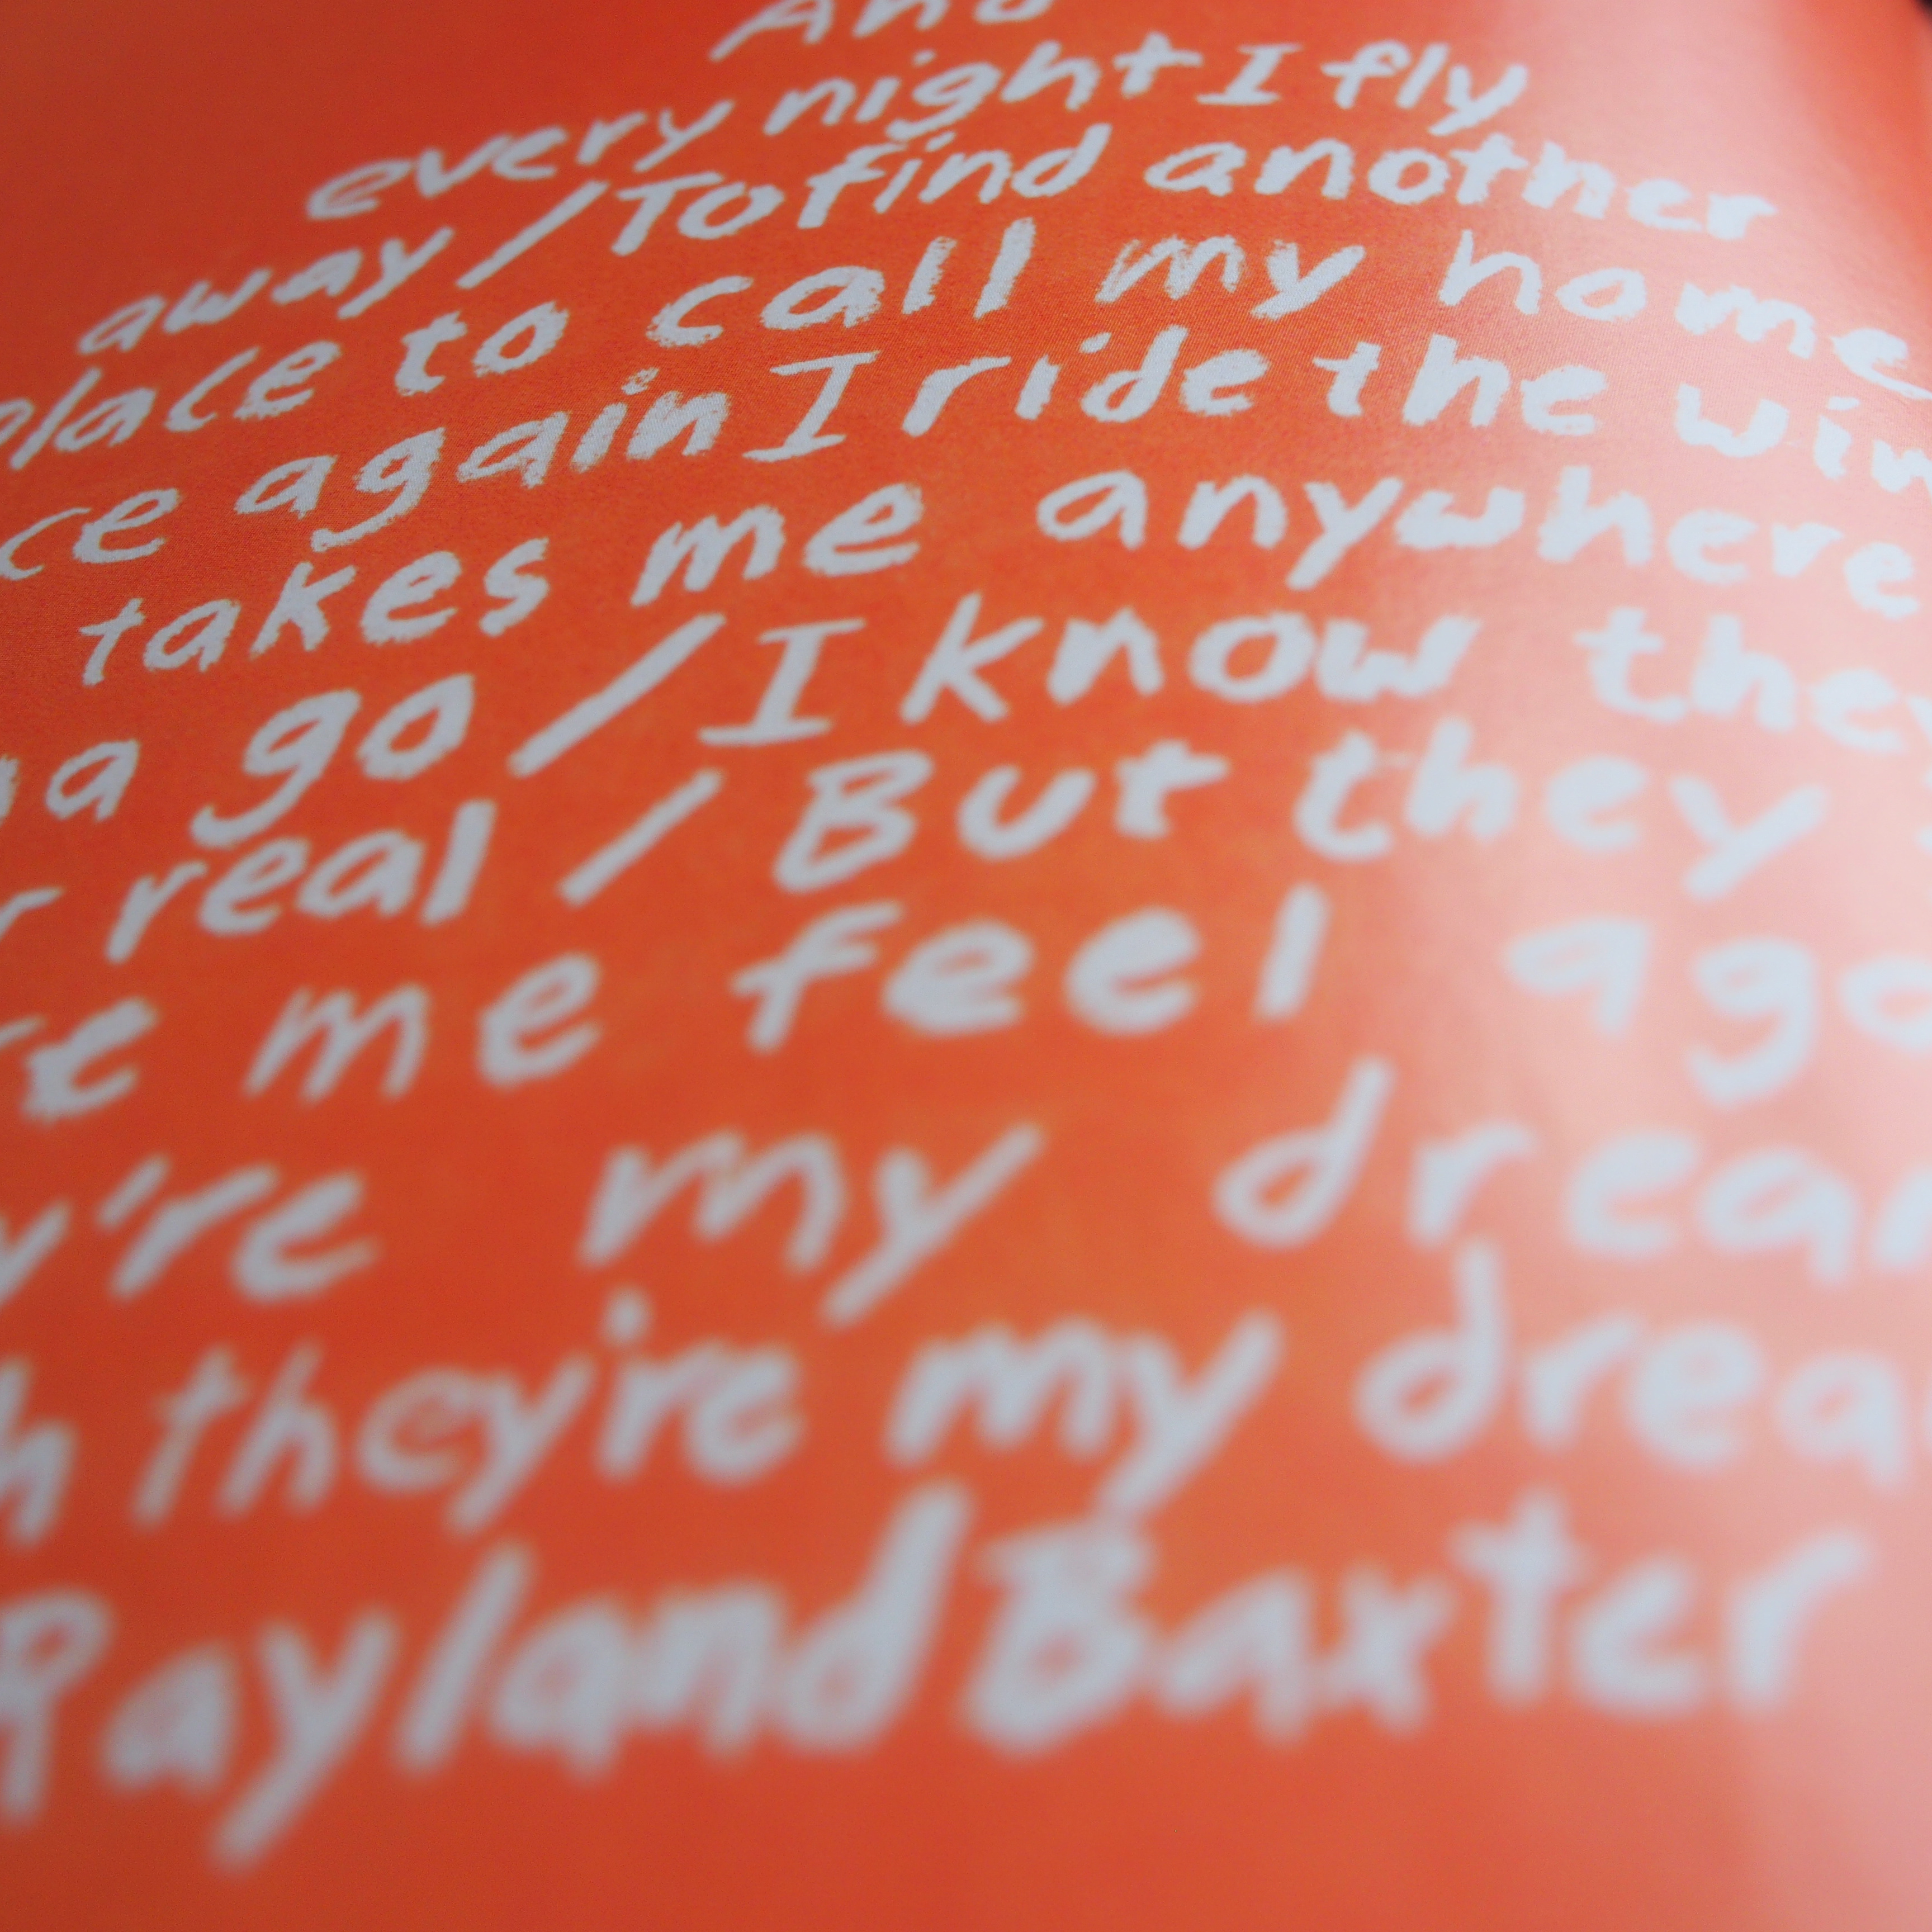 And
every night I fly
away / To find another
place to call my home
ce again I ride the win
takes me anywhere
na go / I know they
r real / But they
re me feel ago
y're my drea
h they're my drea
Rayland Baxter